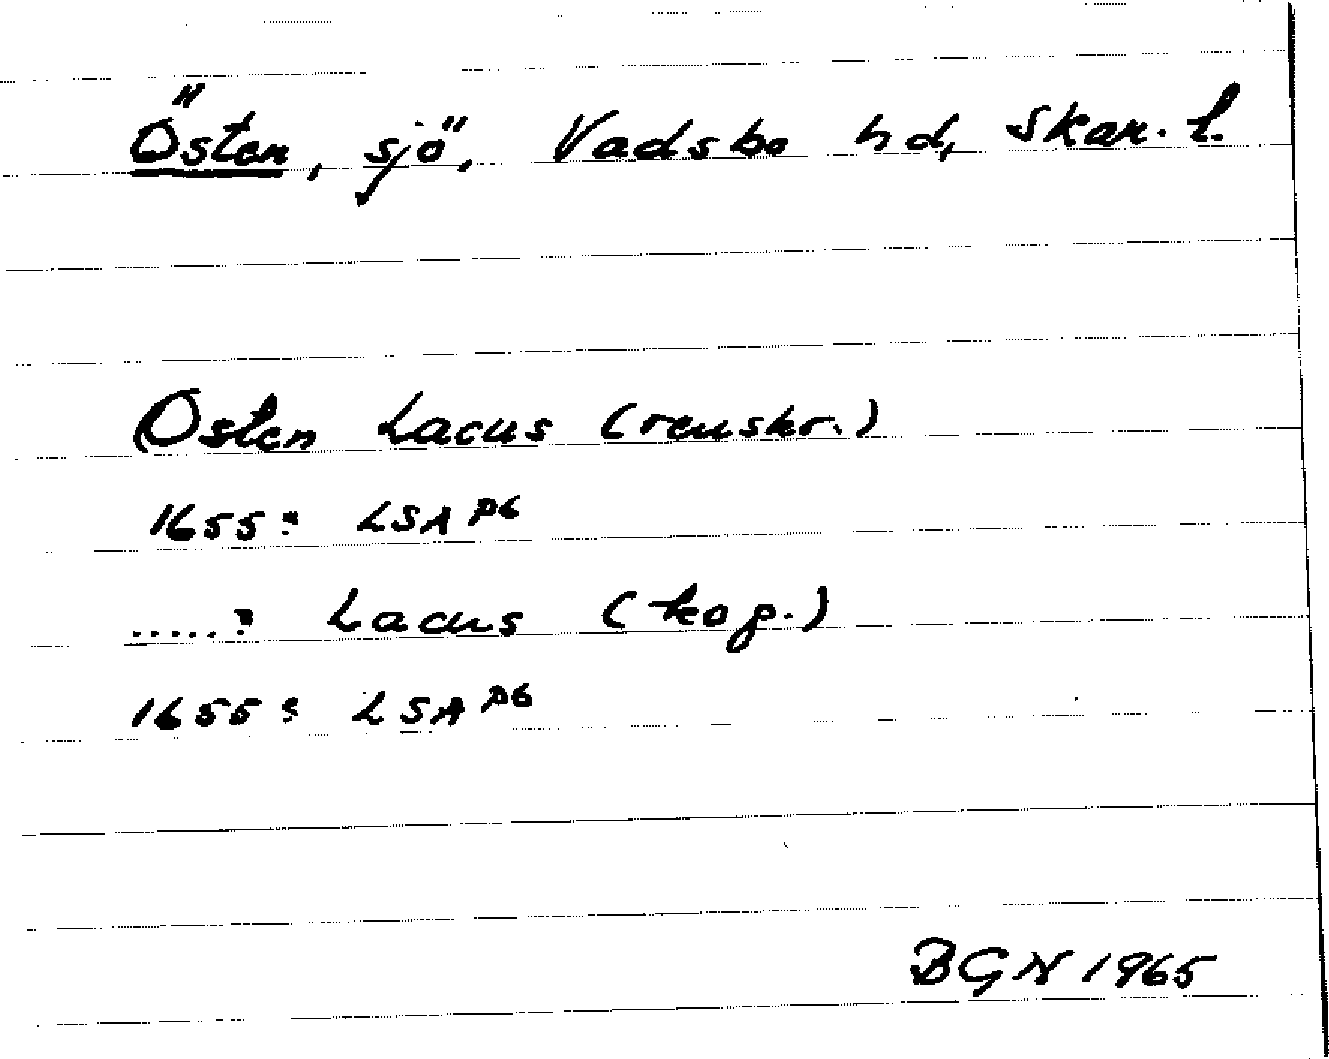 Östen, sjö, Vadsbo hd, Skar. l.
Osten Lacus (renskr.)
1655: LSA P6
.....? Lacus (kop.)
1655: LSA P6
BGN 1965